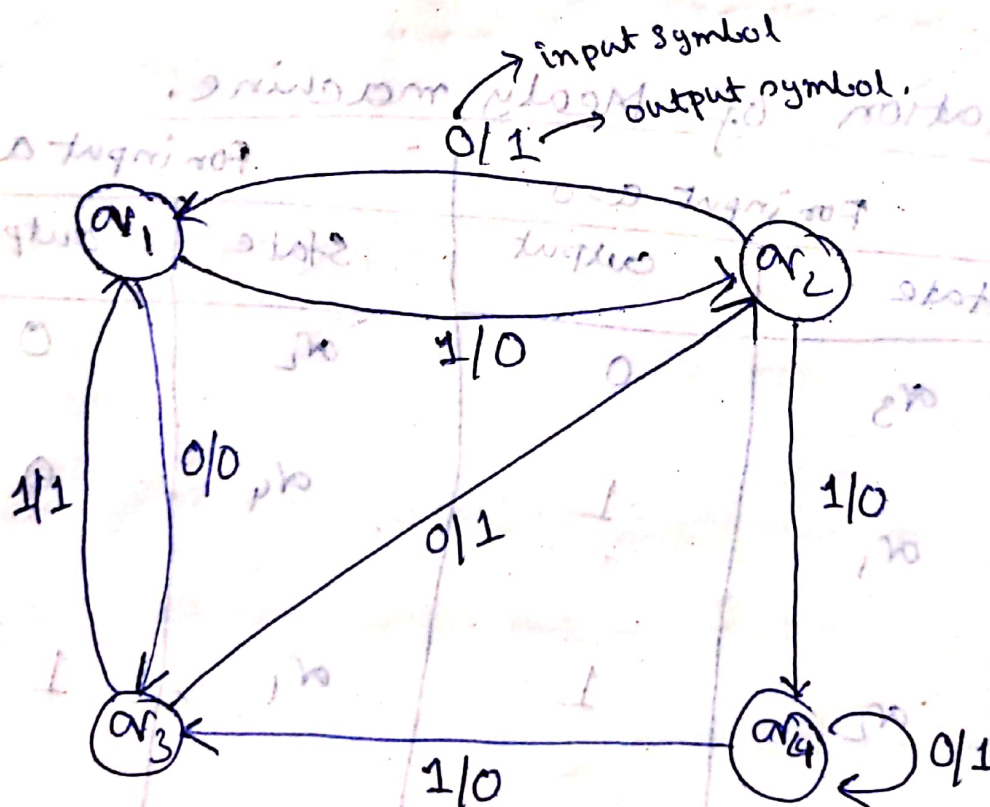 input symbol
output symbol.
0/1
q1
q2
1/0
1/1
0/0
0/1
1/0
q3
q4
1/0
0/1